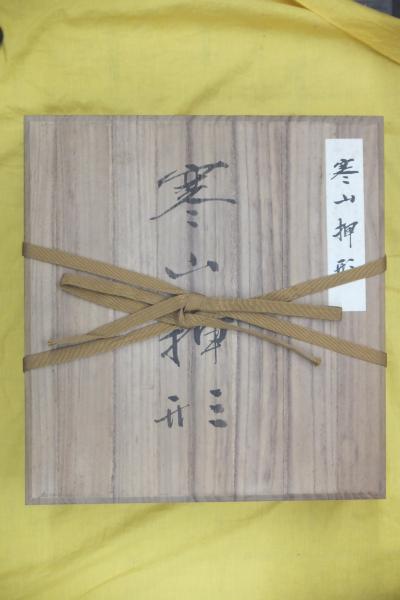 寒山押形
寒山押形